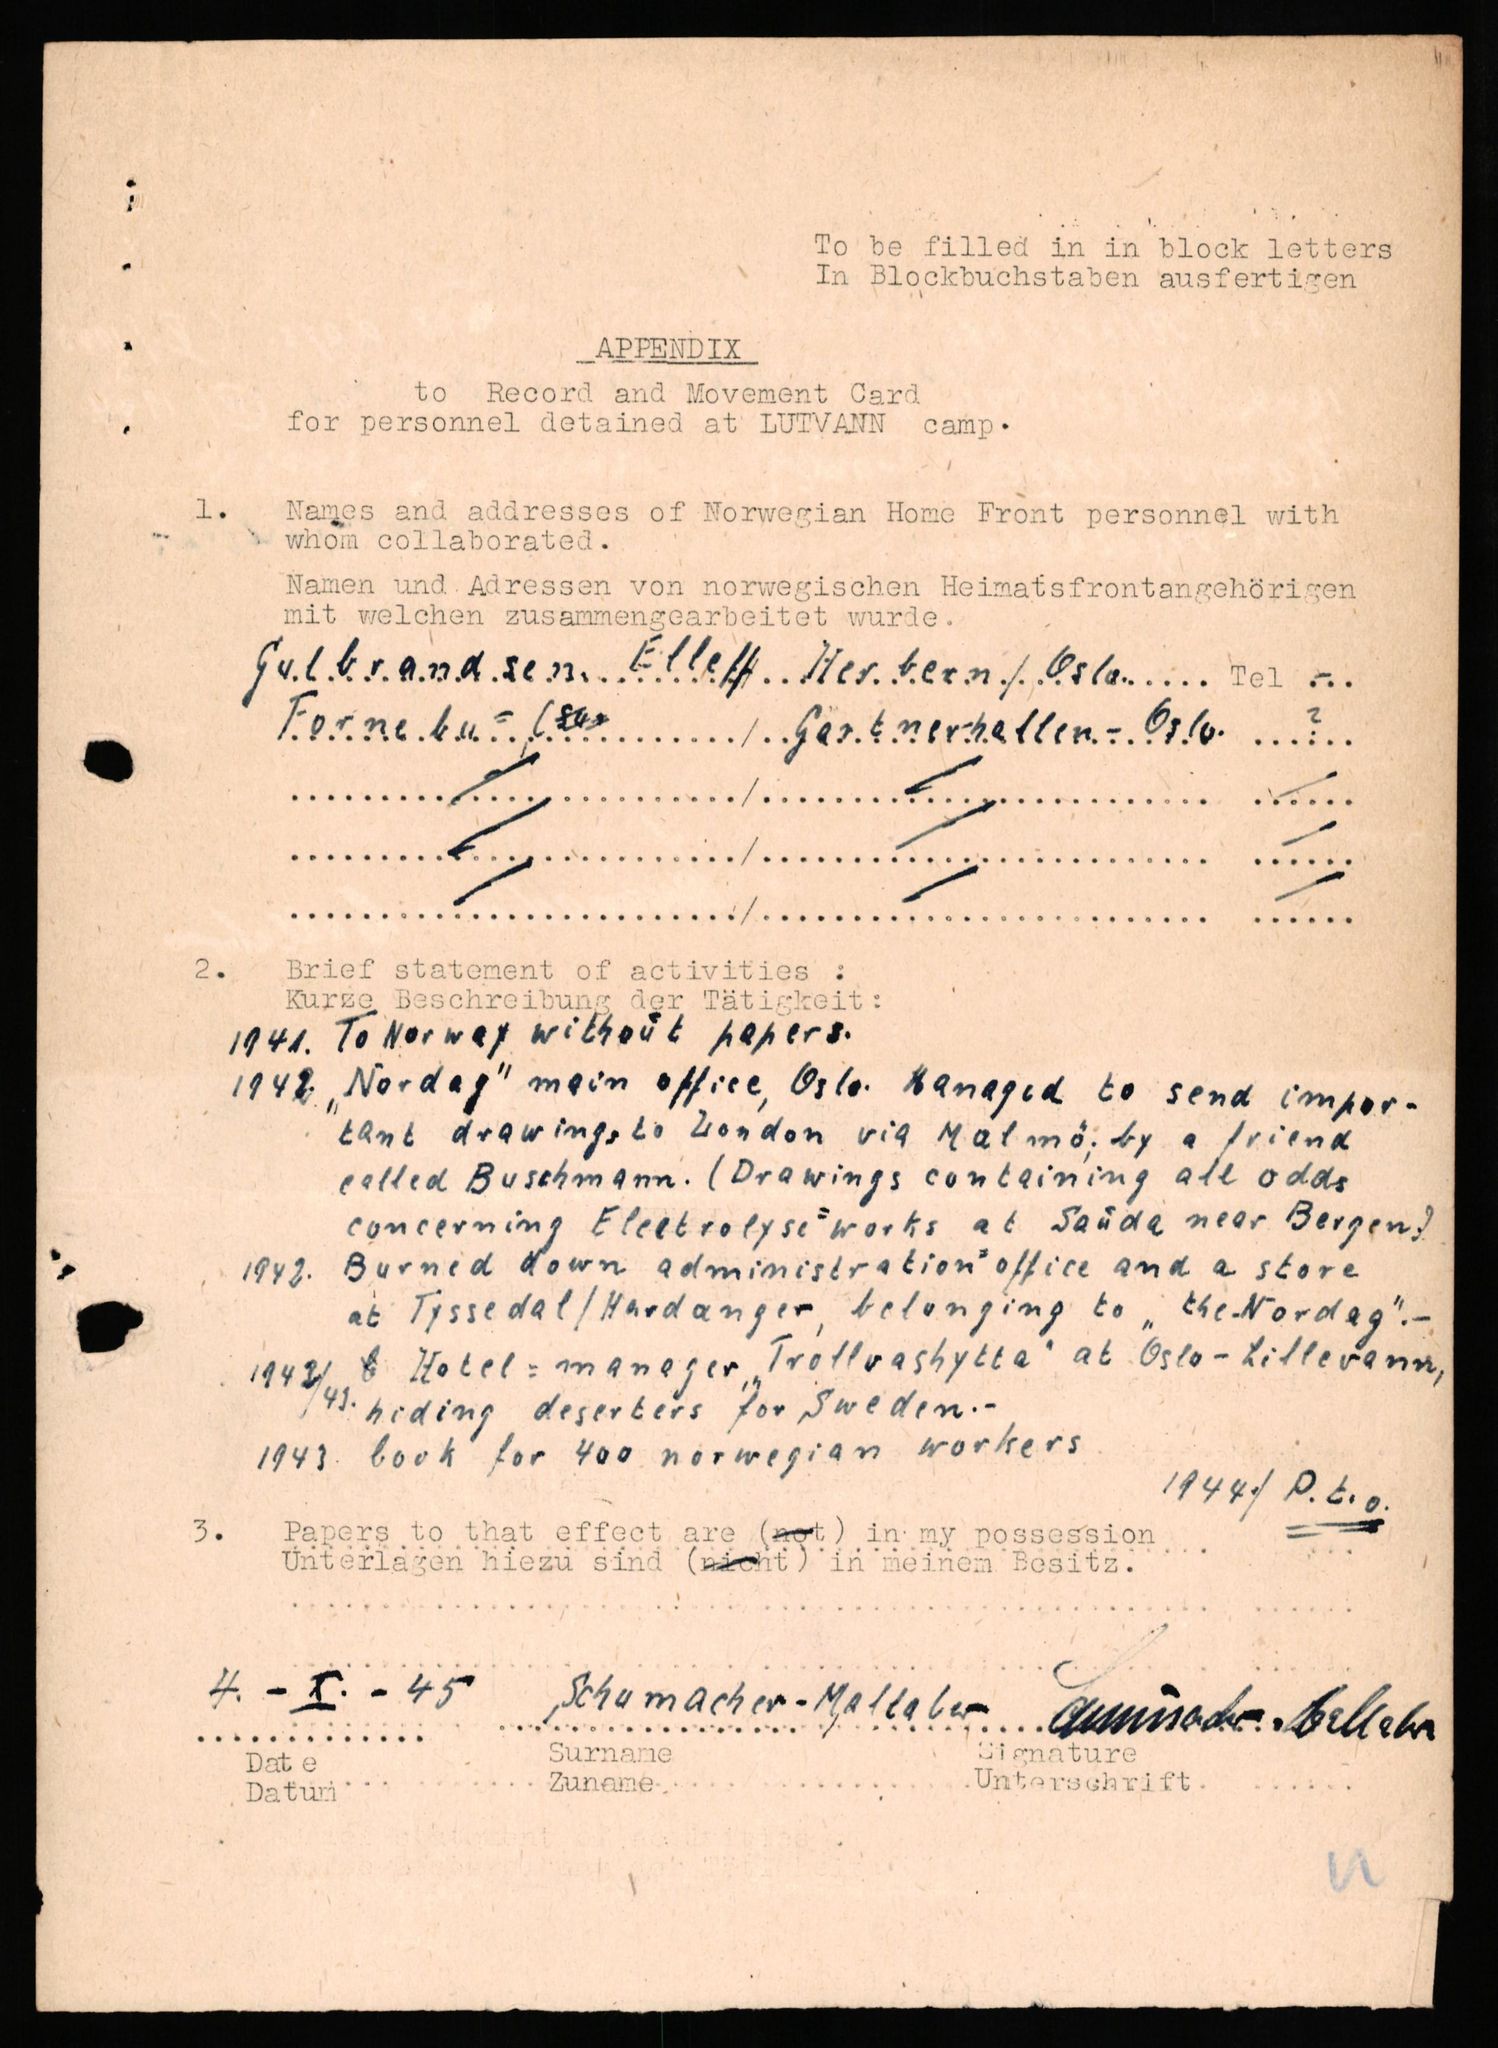 To be filled in in block letters
In Blockbuchstaben ausfertigen
APPENDIX
to Record and Movement Card
for personnel detained at LUTVANN camp.
1. Names and addresses of Norwegian Home Front personnel with
whom collaborated.
Namen und Adressen von norwegischen Heimatsfrontangehörigen
mit welchen zusammengearbeitet wurde.
Gulbrandsen. Elleff Herbern / Oslo. Tel -
Fornebu = / Gartnerhallen - Oslo. ?
2. Brief statement of activities :
Kurze Beschreibung der Tätigkeit:
1941. To Norway without papers.
1942. „Nordag" main office, Oslo. Managed to send impor-
tant drawings to London via Malmö, by a friend
called Buschmann. (Drawings containing all odds
concerning Electrolyse=works at Saŭda near Bergen)
1942. Burned down administration=office and a store
at Tyssedal/Hardanger, belonging to „the Nordag".-
1942/43. Hotel=manager, „Trollvashytta" at Oslo-Lillevann,
hiding deserters for Sweden.-
1943. book for 400 norwegian workers
1944./ P.t.o.
3. Papers to that effect are (not) in my possession
Unterlagen hiezu sind (nicht) in meinem Besitz.
4. - X. - 45 Schumacher-Mallaber
Date Surname Signature
Datum Zuname Unterschrift